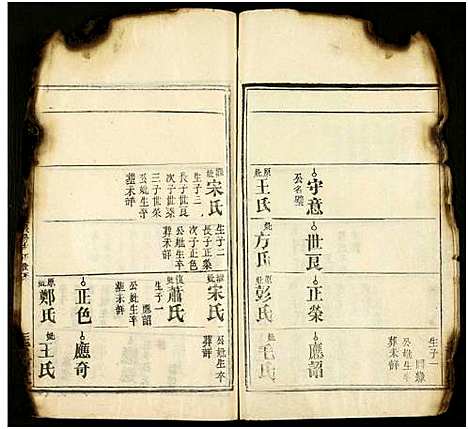 守意
公名璧
原妣王氏
繼妣宋氏
生子三
長子世良
次子世榮
三子世
公妣生卒
塟未詳
世良
妣方氏
生子二
長子正榮
次子正色
公妣生卒
葬未詳
正榮
原妣彭氏
繼妣宋氏
葬詳
妣蕭氏
生子一
應韶
公妣生卒
塟未詳
正色
原妣鄭氏
應韶
妣毛氏
生子一
公妣生卒
葬未詳
應奇
妣王氏